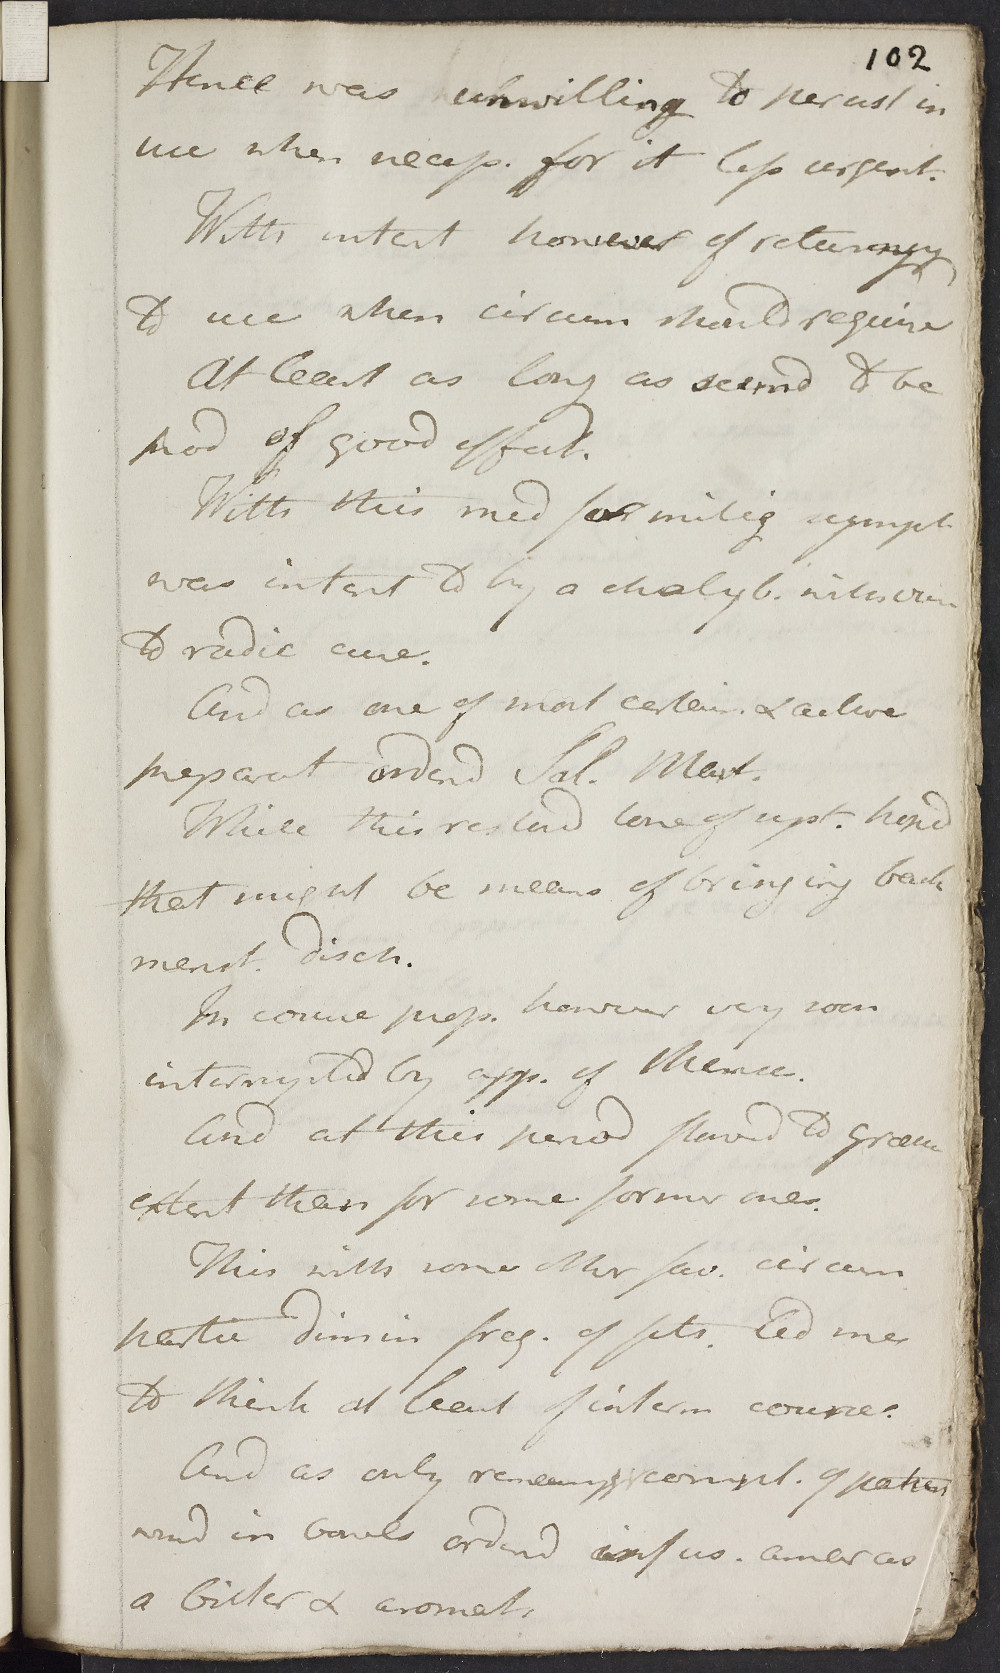 102
Hence was unwilling to persist in
use when necess. for it less urgent.
With intent however of returning
to use when circum should require
At least as long as seemd to be
prod of good effect.
With this med for mitig sympt
was intent to try a chalyb. with view
to radic cure.
And as one of most certain & active
preparat orderd Sal. Mart.
While this restord tone of syst. hopd
that might be means of bringing back
menst. disch.
In course prop. however very soon
interrupted by app. of Mense.
And at this period flowd to greater
extent than for some former ones.
This with some other fav. circum
partic dimin freq. of fits. Led me
to think at least of interm course.
And as only remaing compl. of patient
wind in bowels orderd infus. amar as
a bitter & aromat.